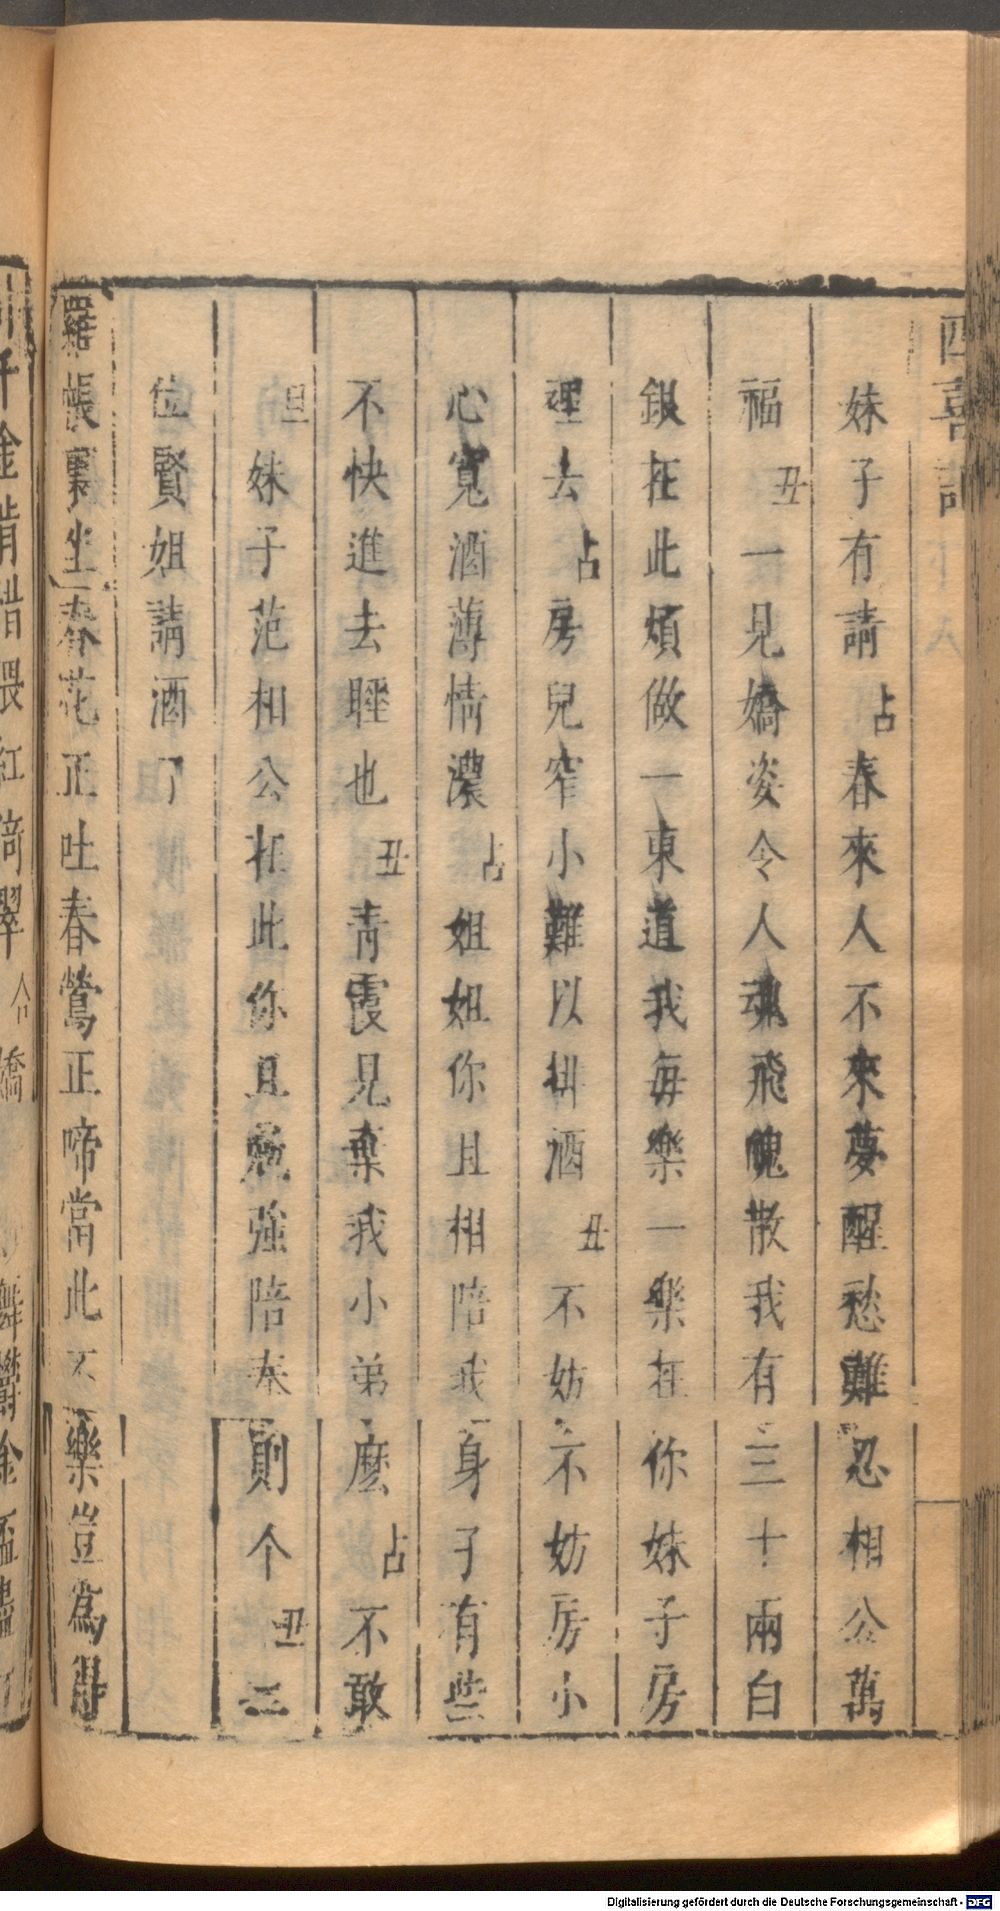 四喜記
妹子有請占春來人不來夢醒愁難忍相公萬
福丑一見嬌姿令人魂飛魄散我有三十兩白
銀在此煩做一東道我每樂一樂在你妹子房
裡去占房兒窄小難以排酒丑不妨不妨房小
心寬酒薄情濃占姐姐你且相陪我身子有些
不快進去睡也丑青霞見棄我小弟麽占不敢
旦妹子范相公在此你且勉強陪奉則个丑二
位賢姐請酒了
羅帳裏坐春花正吐春鶯正啼當此不樂豈爲得
千金
紅倚翠合嬌
Digitalisierung gefördert durch die Deutsche Forschungsgemeinschaft - DFG